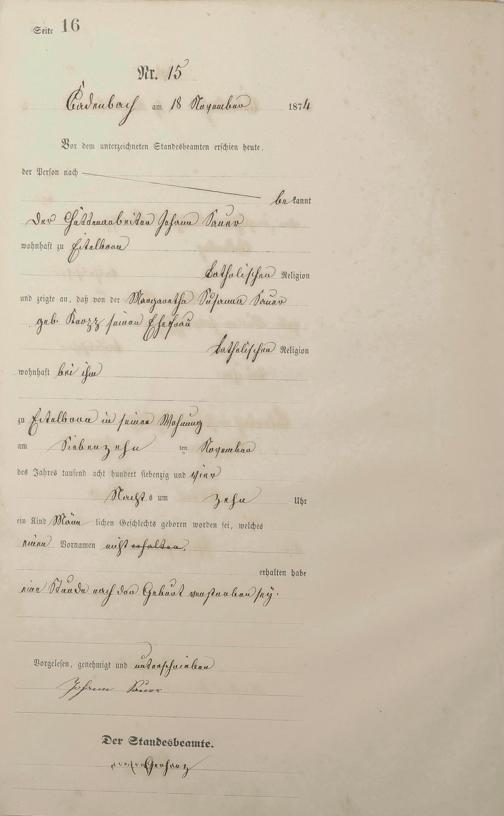 Seite 16
Nr. 15
Cadenbach am 18 November 1874
Vor dem unterzeichneten Standesbeamten erschien heute,
der Person nach
bekannt
der Hüttenarbeiter Johann Sauer
wohnhaft zu Eitelborn
katholischen Religion
und zeigte an, daß von der Margaretha Susanna Sauer
geb. seiner Ehefrau
katholischen Religion
wohnhaft bei ihm
zu Eitelborn in seiner Wohnung
am Siebenzehn ten November
des Jahres tausend acht hundert siebenzig und vier
Nachts um zehn Uhr
ein Kind Männlichen Geschlechts geboren worden sei, welches
einen Vornamen nicht erhalten,
erhalten habe
eine Stunde nach der Geburt verstorben sey.
Vorgelesen, genehmigt und unterschrieben
Johann Sauer
Der Standesbeamte.